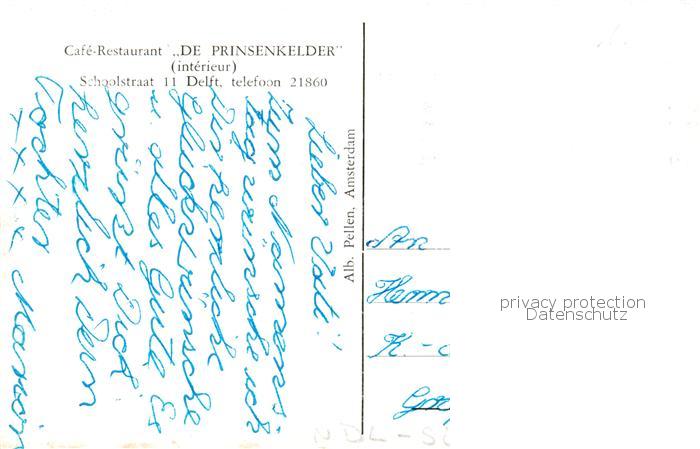 Café-Restaurant „DE PRINSENKELDER”
(intérieur)
Schoolstraat 11 Delft, telefoon 21860
Alb. Pellen, Amsterdam
Lieber Vati!
Zum Namens-
tag wünsche ich
Dir herzliche
Glückwünsche
u. alles Gute. Es
grüßt Dich
herzlich Dein
Tochter
xxxx
An
Herrn
K.-
privacy protection
Datenschutz